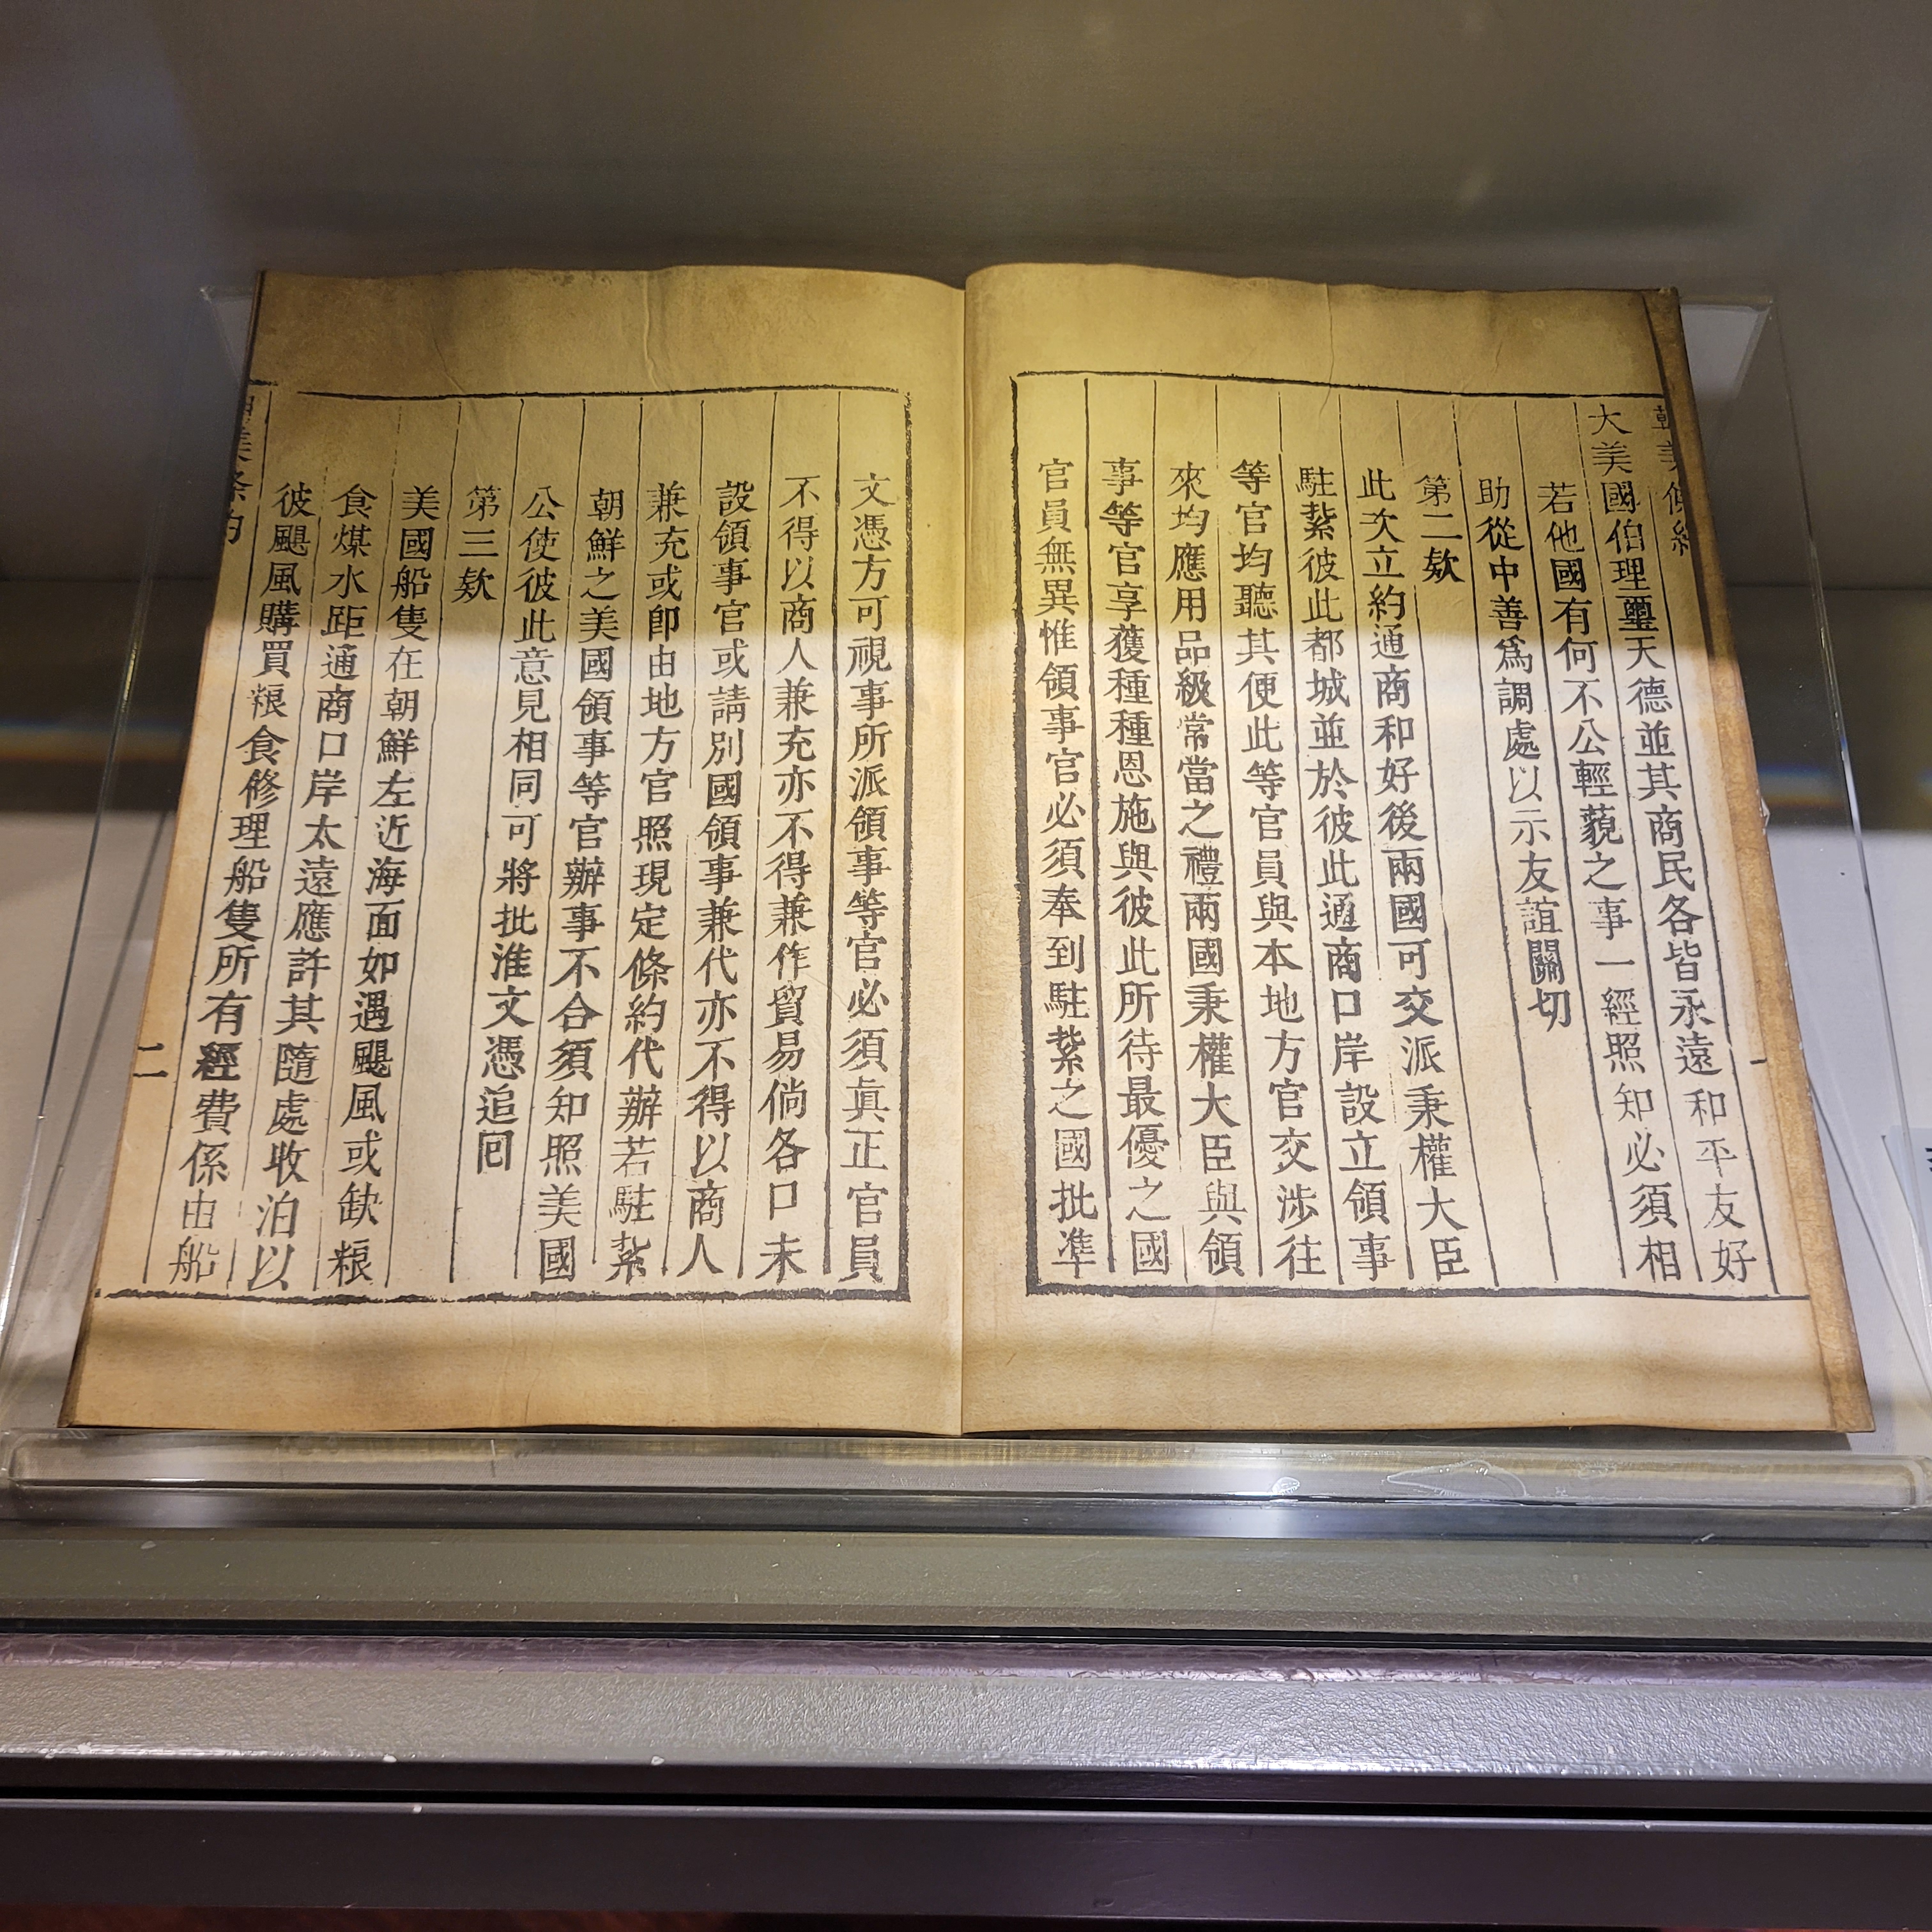 大美國伯理璽天德並其商民各皆永遠和平友好
若他國有何不公輕藐之事一經照知必須相
助從中善爲調處以示友誼關切
第二欵
此次立約通商和好後兩國可交派秉權大臣
駐紮彼此都城並於彼此通商口岸設立領事
等官均聽其便此等官員與本地方官交涉往
來均應用品級常當之禮兩國秉權大臣與領
事等官享獲種種恩施與彼此所待最優之國
官員無異惟領事官必須奉到駐紮之國批準
文憑方可視事所派領事等官必須眞正官員
不得以商人兼充亦不得兼作貿易倘各口未
設領事官或請別國領事兼代亦不得以商人
兼充或卽由地方官照現定條約代辦若駐紮
朝鮮之美國領事等官辦事不合須知照美國
公使彼此意見相同可將批準文憑追囘
第三欵
美國船隻在朝鮮左近海面如遇颶風或缺粮
食煤水距通商口岸太遠應許其隨處收泊以
彼颶風購買粮食修理船隻所有經費係由船
二